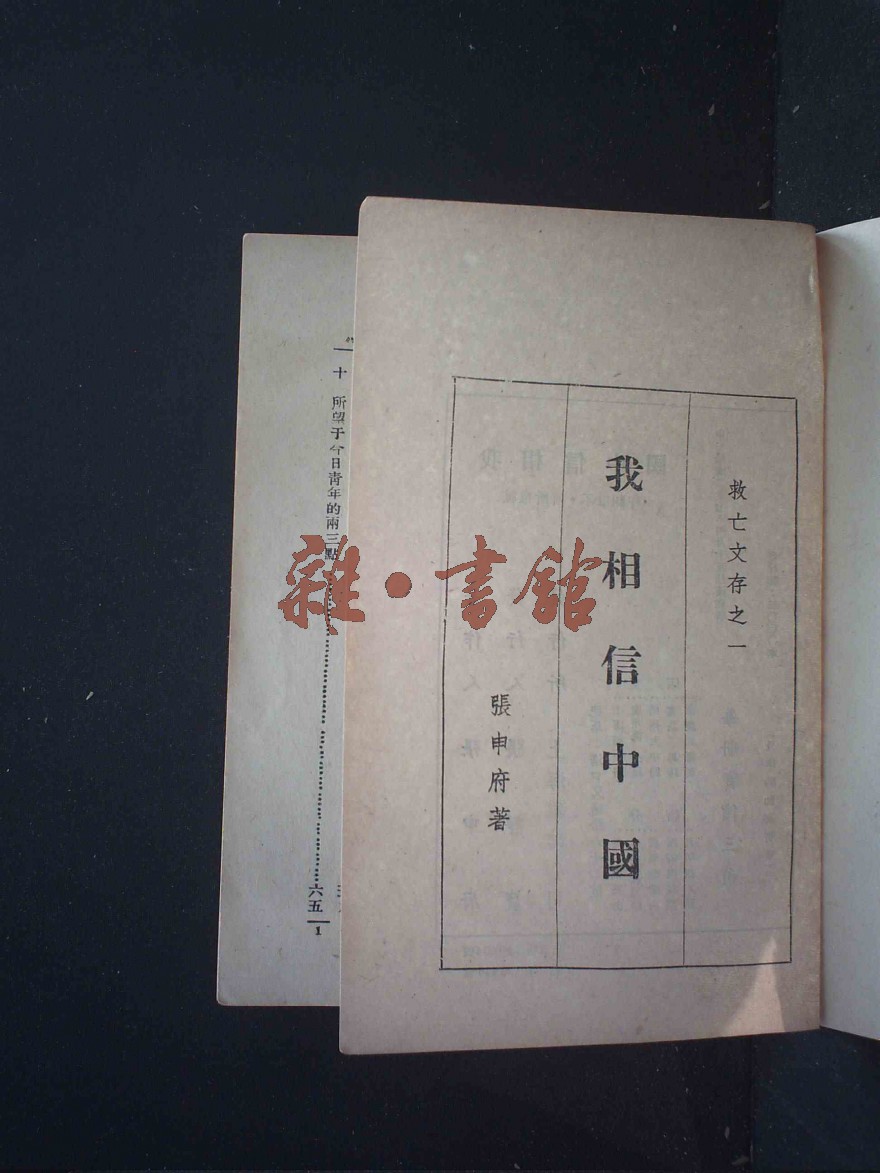 救亡文存之一
我相信中國
張申府著
十 所望于今日青年的兩三點……………………六五
1
雜·書館